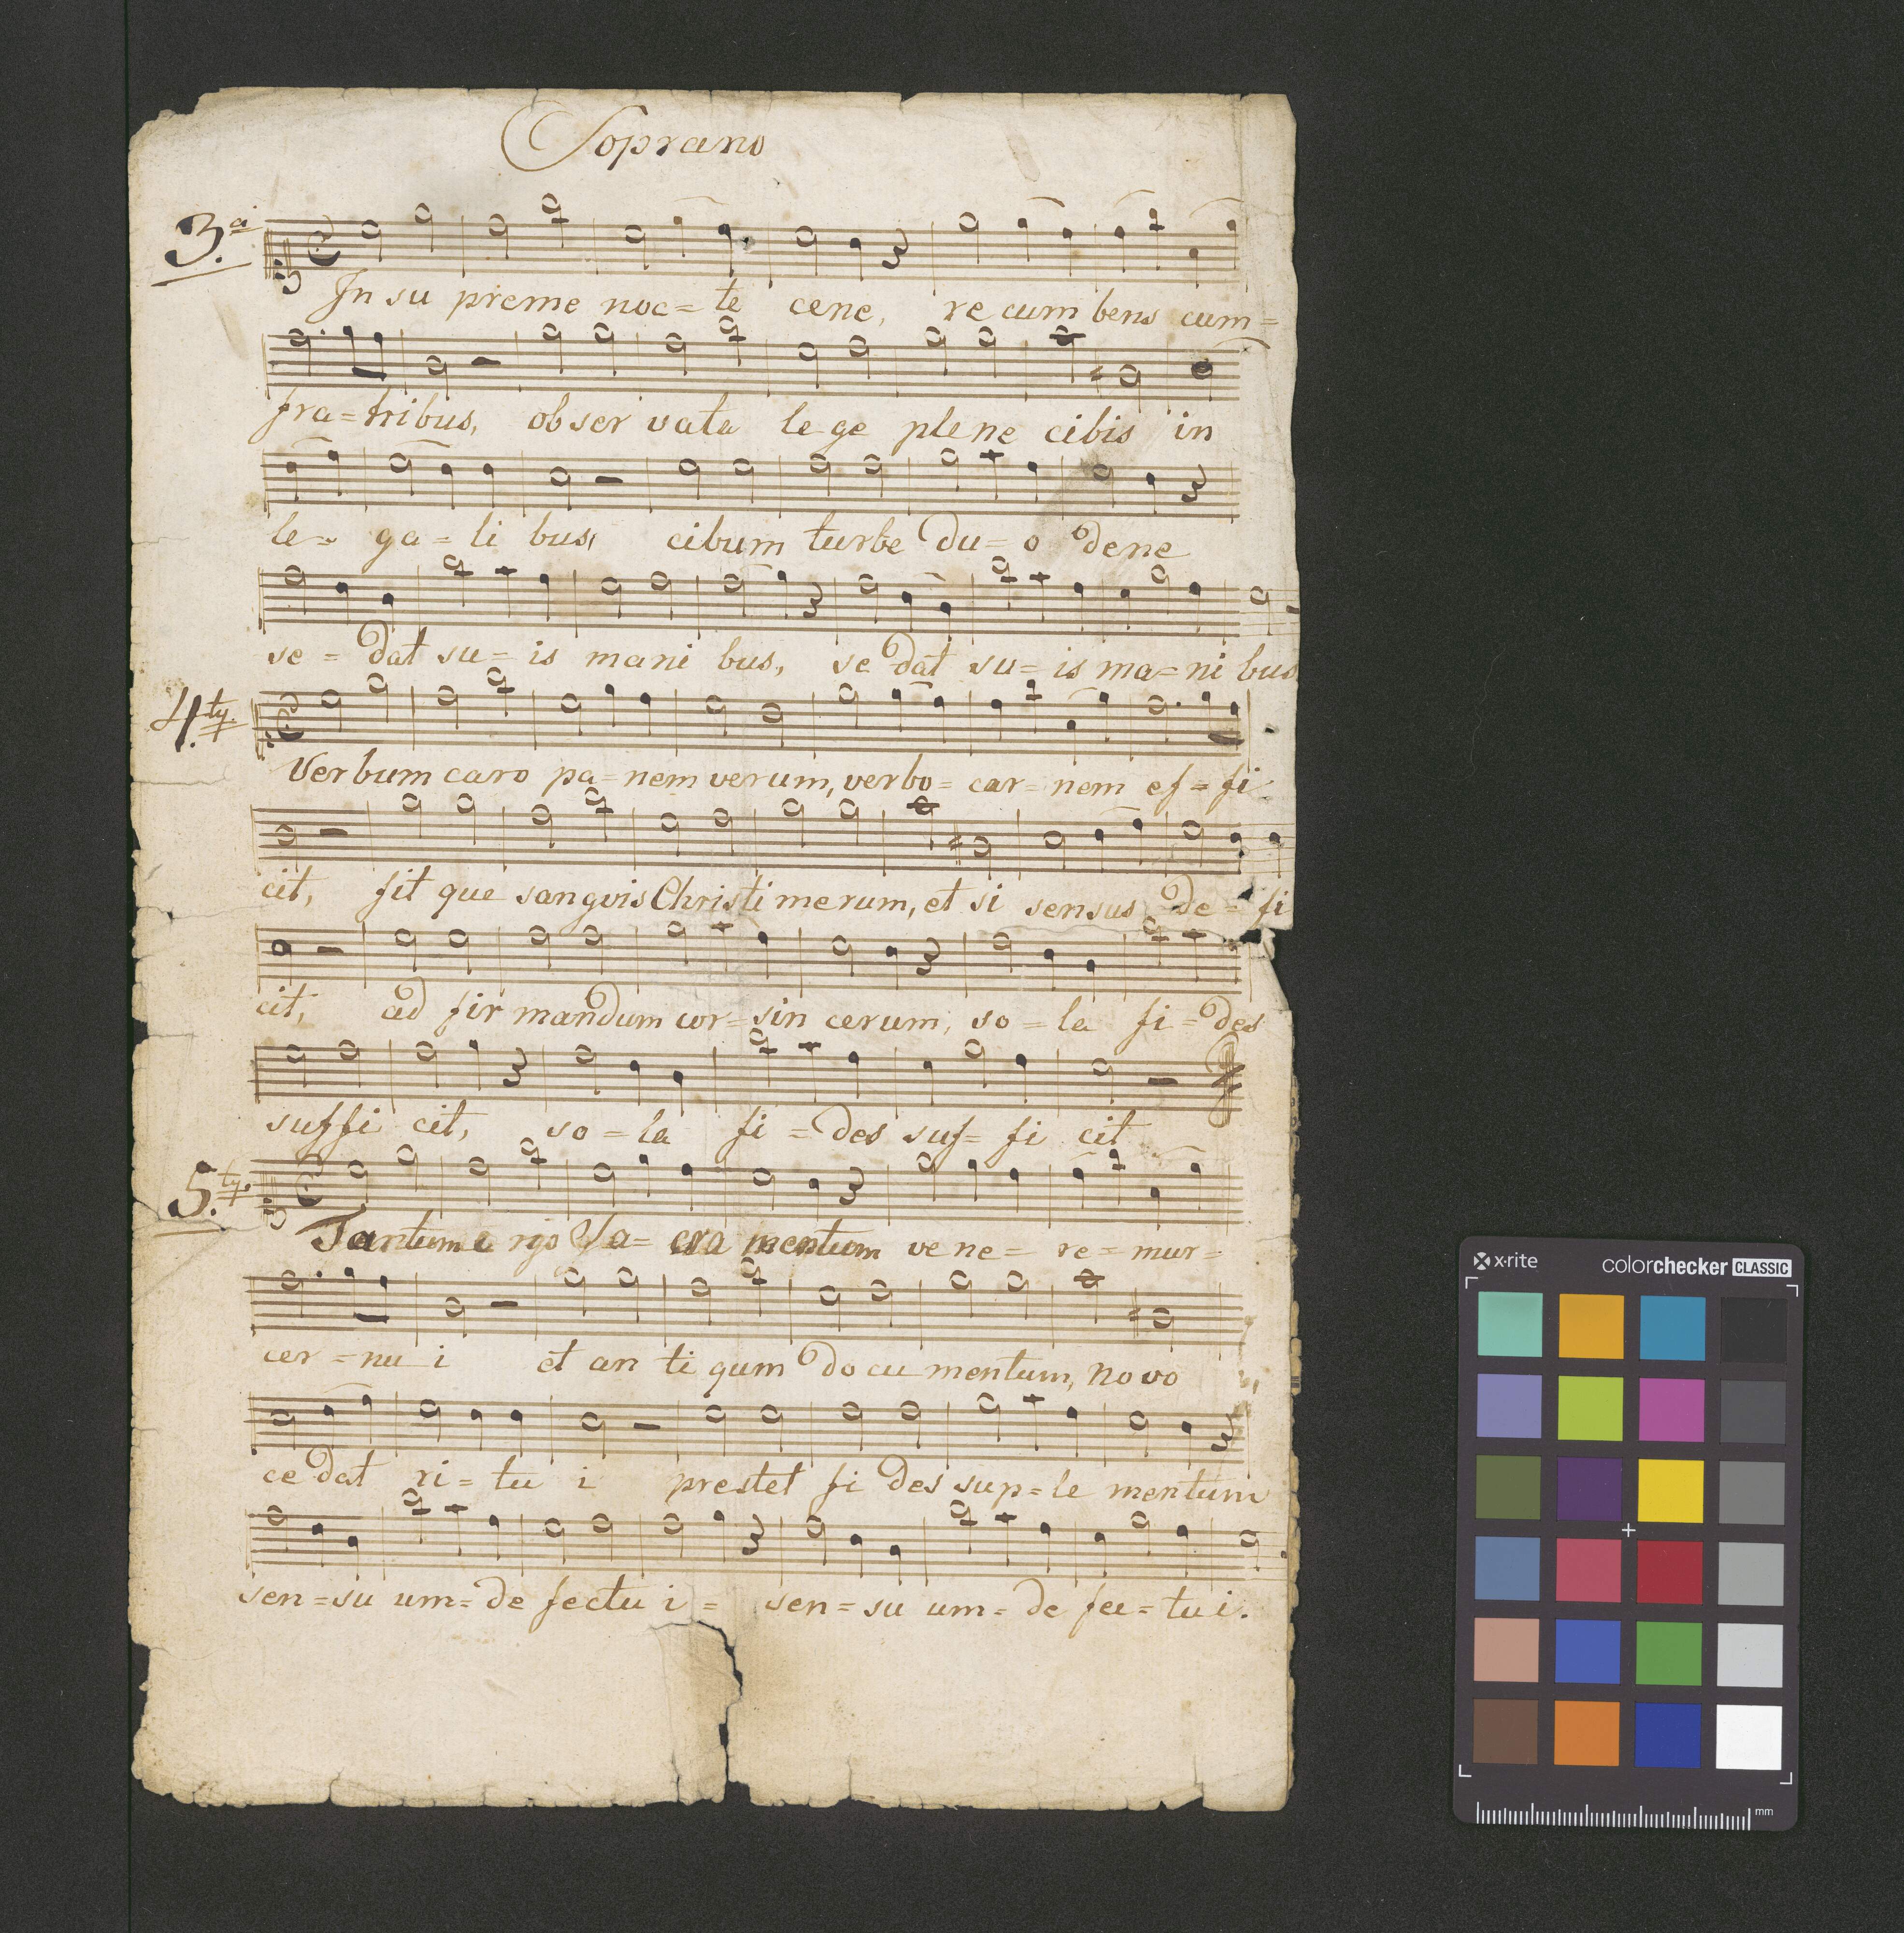 Soprano
3.a
In su preme noc=te cene, re cum bens cum=
fra=tribus, ob ser vata le ge ple ne cibis in
le= ga=li bus, cibum turbe du=o dene
se=dat su=is mani bus, se dat su=is ma=ni bus
4.ty.
Verbum caro pa=nem verum, verbo=car=nem ef=fi
cit, fit que sangvis Christi merum, et si sensus de=fi
cit, ad fir mandum cor=sin cerum, so=la fi=des
suffi cit, so=la fi=des suf=fi cit
5.ty.
Tantum e rgo Sa=cra mentum ve ne=re=mur=
cer=nu i et an ti qum do cu mentum, no vo
ce dat ri=tu i prestet fi des sup=le mentum
sen=su um=de fectu i= sen=su um=de fec=tu i.
x·rite
colorchecker CLASSIC
mm